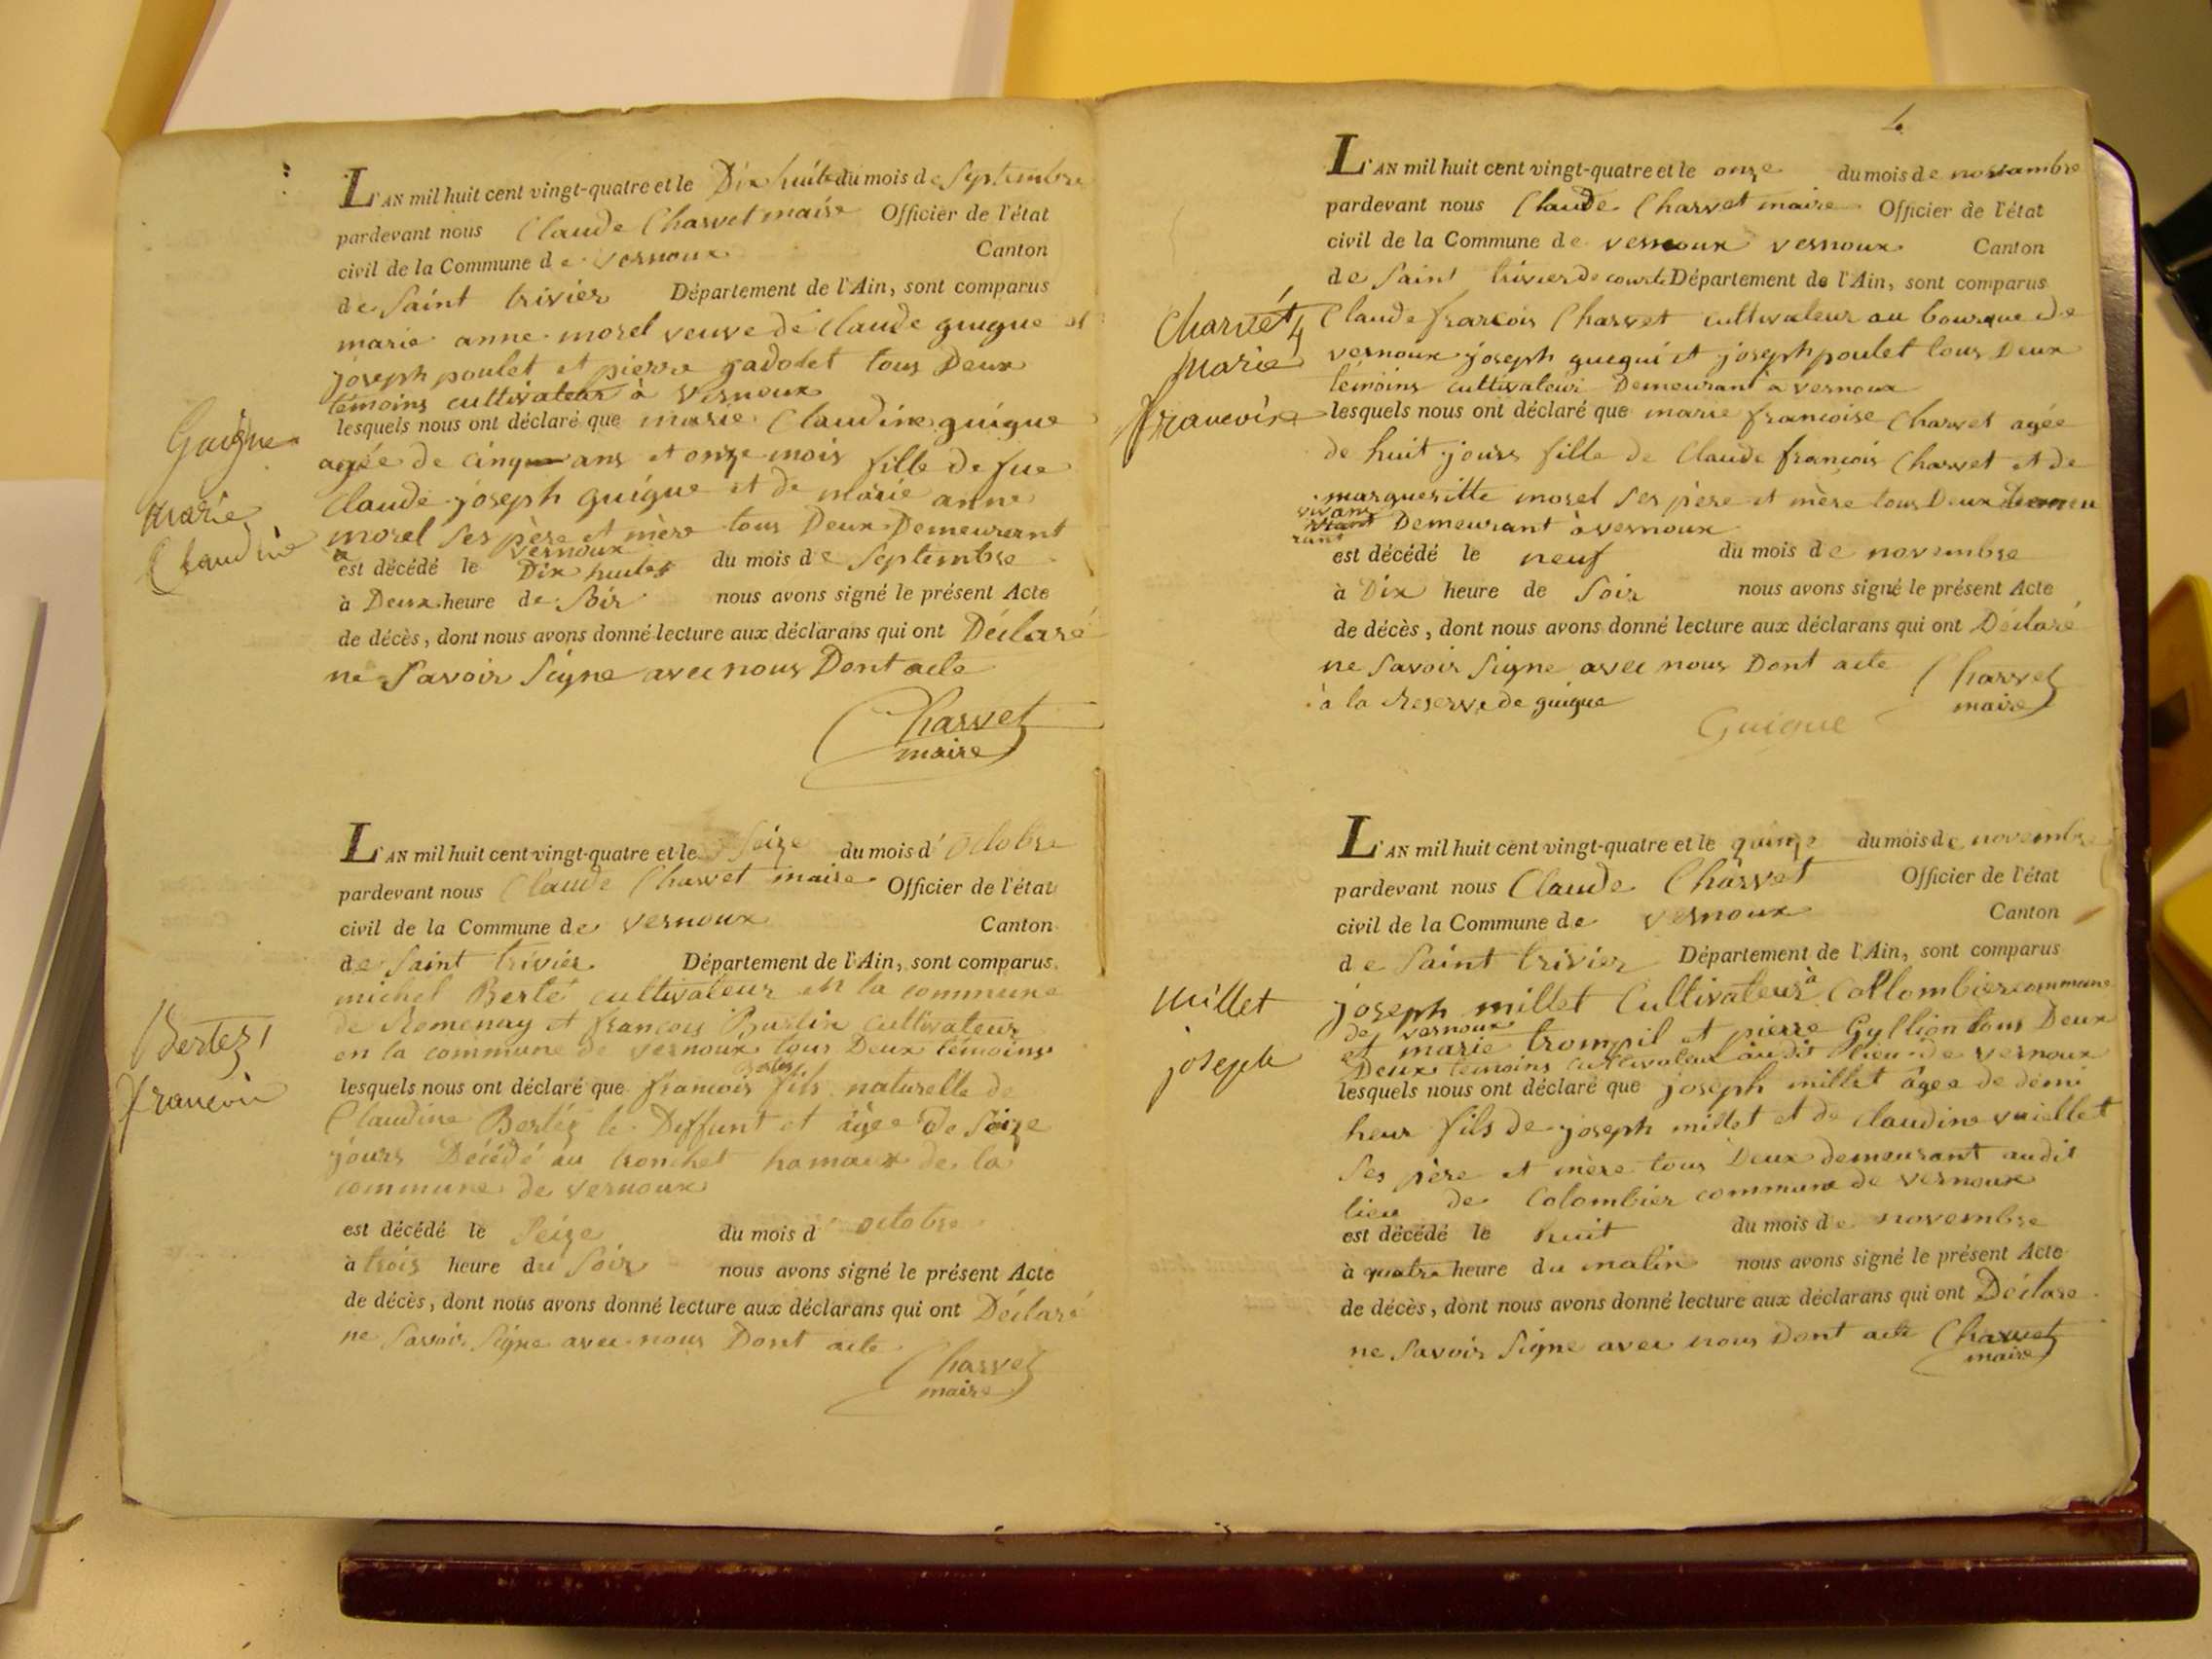 L'AN mil huit cent vingt-quatre et le Dix huite du mois de Septembre
pardevant nous Claude Charvet maire Officier de l'état
civil de la Commune de vernoux Canton
de Saint trivier Département de l'Ain, sont comparus
marie anne morel veuve de Claude guigue et
joseph poulet et pierre gadolet tous Deux
témoins cultivateur à vernoux
Guigue
Marie
Claudine
lesquels nous ont déclaré que marie Claudine guigue
agée de cinq ans et onze mois fille de fue
Claude joseph guigue et de marie anne
morel ses père et mère tous Deux Demeurant
a vernoux
est décédé le Dix huites du mois de Septembre
à Deux heure de Soir nous avons signé le présent Acte
de décès, dont nous avons donné lecture aux déclarans qui ont Déclaré
ne Savoir Signe avec nous Dont acte
Charvet
maire
L'AN mil huit cent vingt-quatre et le Seize du mois d'Octobre
pardevant nous Claude Charvet maire Officier de l'état
civil de la Commune de vernoux Canton
de Saint trivier Département de l'Ain, sont comparus
michel Berté cultivateur en la commune
de Romenay et francois Burlin cultivateur
en la commune de vernoux tous Deux témoins
Bertez
francois
lesquels nous ont déclaré que francois Bertez fils naturelle de
Claudine Bertéz le Deffunt et agée de Seize
jours Décédé au tronchet hamaux de la
commune de vernoux
est décédé le Seize du mois d'octobre
à trois heure du Soir nous avons signé le présent Acte
de décès, dont nous avons donné lecture aux déclarans qui ont Déclaré
ne Savoir Signe avec nous Dont acte
Charvet
maire
4
L'AN mil huit cent vingt-quatre et le onze du mois de novambre
pardevant nous Claude Charvet maire Officier de l'état
civil de la Commune de vernoux vernoux Canton
de Saint trivier de courte Département de l'Ain, sont comparus
Charvet
Marie
francoise
Claude francois Charvet cultivateur au bourque de
vernoux joseph guegui et joseph poulet tous Deux
témoins cultivateur Demeurant à vernoux
lesquels nous ont déclaré que marie francoise Charvet agée
de huit jours fille de Claude francois Charvet et de
margueritte morel ses père et mère tous Deux
vivant
Demeurant à vernoux
est décédé le neuf du mois de novembre
à Dix heure de Soir nous avons signé le présent Acte
de décès, dont nous avons donné lecture aux déclarans qui ont Déclaré
ne Savoir Signe avec nous Dont acte
à la Reserve de guigue
Charvet
maire
Guigue
L'AN mil huit cent vingt-quatre et le quinze du mois de novembre
pardevant nous Claude Charvet Officier de l'état
civil de la Commune de vernoux Canton
de Saint trivier Département de l'Ain, sont comparus
Millet
joseph
joseph millet Cultivateur à Collombier commune
de vernoux
et marie trompil et pierre Gyllion tous Deux
Deux témoins cultivateur audit lieu de vernoux
lesquels nous ont déclaré que joseph millet âgee de demi
heur fils de joseph millet et de claudine vuiellet
Ses père et mère tous Deux demeurant audit
lieu de Colombier commune de vernoux
est décédé le huit du mois de novembre
à quatre heure du matin nous avons signé le présent Acte
de décès, dont nous avons donné lecture aux déclarans qui ont Déclare
ne Savoir Signe avec nous Dont acte
Charvet
maire